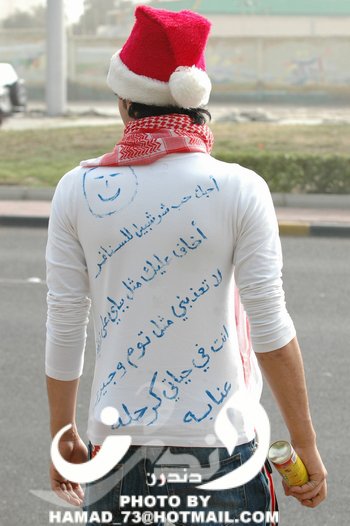 أحبك حب شرشبيل للسنافر
أخاف عليك مثل بباي على
لا تعذبني مثل توم وجيري
انت في حياتي كرحلة
عنابه
دندرن
PHOTO BY
HAMAD_73@HOTMAIL.COM